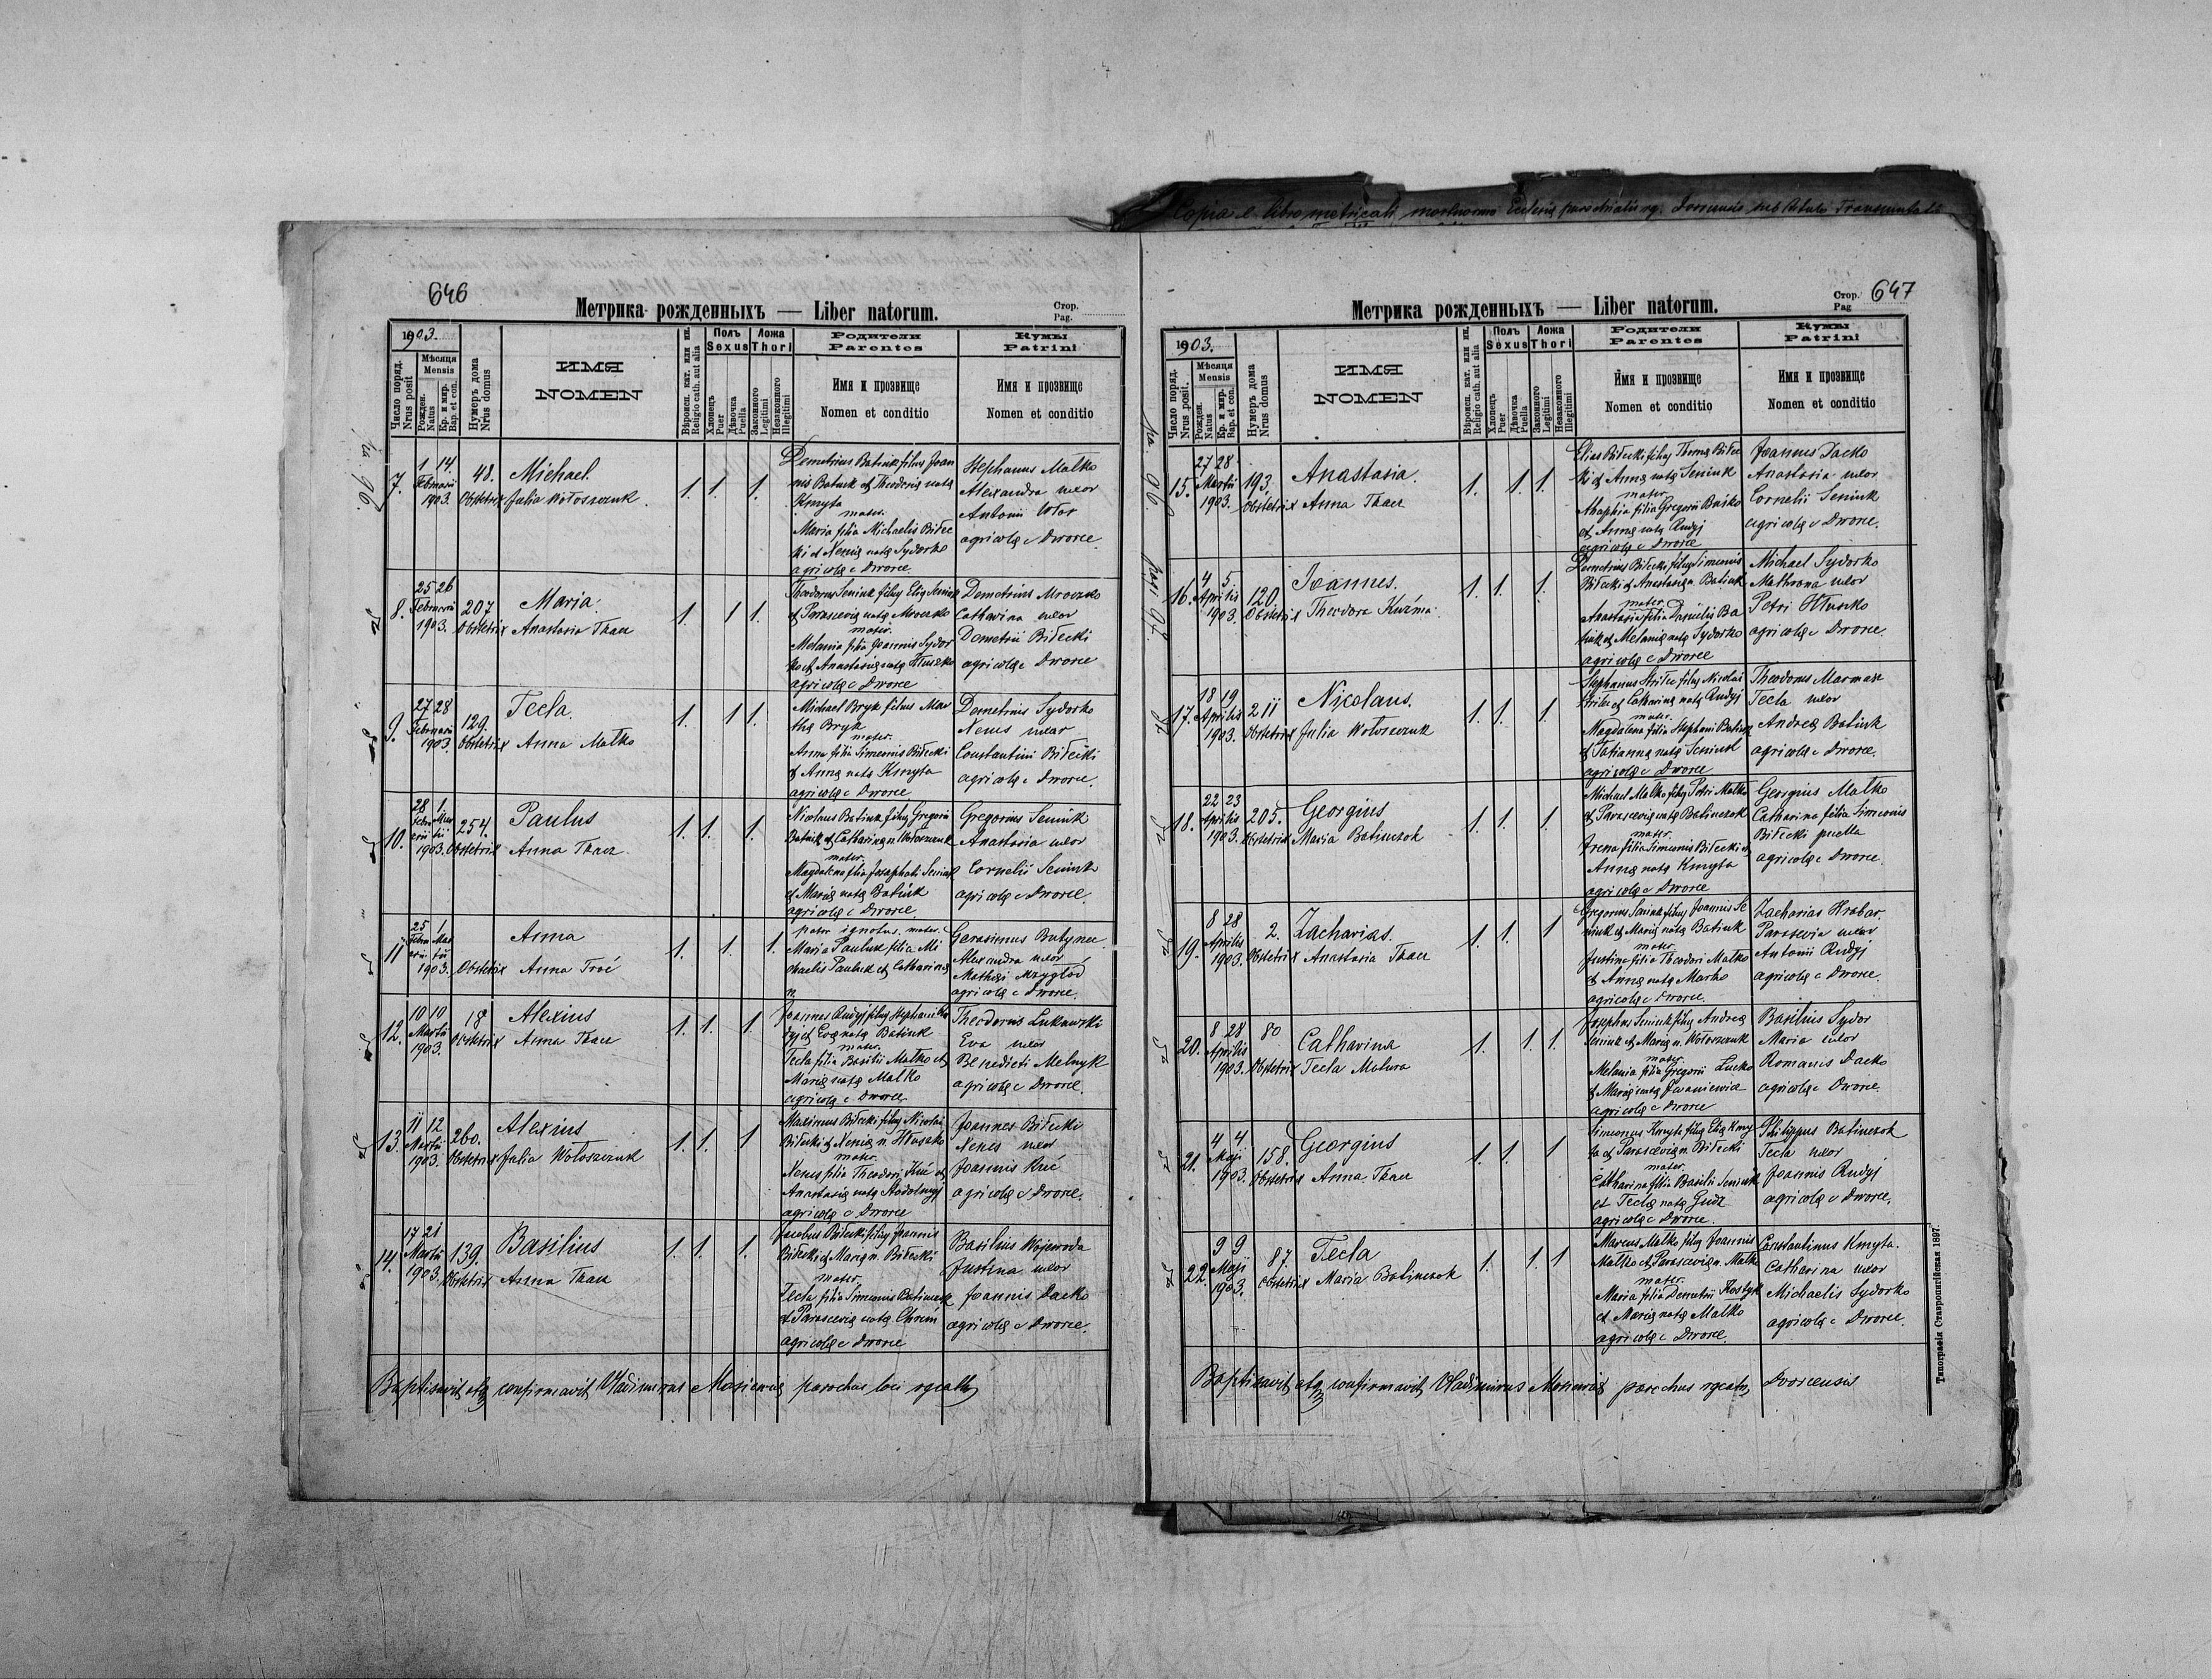 Copia e libro metricali mortuorum Ecclesiæ parochialis
646
Метрика рожденныхъ — Liber natorum.
Стор.
Pag.
1903.
Число поряд.
Nrus posit
Мѣсяця
Mensis
Рожден.
Natus
Кр. и мир.
Bap. et con.
Нумеръ дома
Nrus domus
ИМЯ
NOMEN
Вѣроисп. кат. или ин.
Religio cath. aut alia
Полъ
Sexus
Хлопецъ
Puer
Дѣвочка
Puella
Ложа
Thori
Законного
Legitimi
Незаконного
Illegitimi
Родители
Parentes
Имя и прозвище
Nomen et conditio
Кумы
Patrini
Имя и прозвище
Nomen et conditio
7.
1 14.
Februarii
1903.
48.
Obstetrix
Michael.
Julia Wołoszczuk.
1. 1. 1.
Demetrius Batiuk filius Joan
nis Batiuk et Theodoræ natæ
Kmyta
mater.
Maria filia Michaelis Biłec
ki et Xeniæ natæ Sydorko
agricolæ e Dworce
Stephanus Małko
Alexandra uxor
Antonii
agricolæ e Dworce
8.
25 26
Februarii
1903.
207
Obstetrix
Maria.
Anastasia Tkacz
1. 1 1.
Theodorus Seniuk filius Eliæ Seniuk
et Parasceviæ natæ Mroczko
mater.
Melania filia Joannis Sydor
ko et Anastasiæ natæ Hłuszko
agricolæ e Dworce
Demetrius Mroczko
Catharina uxor
Demetrii Biłecki
agricolæ e Dworce
9.
27 28
Februarii
1903.
129.
Obstetrix
Tecla.
Anna Małko
1. 1 1.
Michael Bryk filius Mar
thæ Bryk
mater.
Anna filia Simeonis Biłecki
et Annæ natæ Kmyta
agricolæ e Dworce
Demetrius Sydorko
Xenia uxor
Constantini Biłecki
agricolæ e Dworce.
10.
28 1.
Febru Mar
arii tii
1903.
254.
Obstetrix
Paulus
Anna Tkacz
1. 1. 1.
Nicolaus Batiuk filius Gregorii
Batiuk et Catharinæ n. Wołoszczuk
mater.
Magdalena filia Josaphati Seniuk
et Mariæ natæ Batiuk
agricolæ e Dworce
Gregorius Seniuk
Anastasia uxor
Cornelii Seniuk
agricolæ e Dworce.
11
25 1
Febru Mar
arii tii
1903.
Obstetrix
Anna
Anna Troć
1. 1. 1.
pater ignotus. mater.
Maria Pauluk filia Mi
chaelis Pauluk et Catharinæ
n.
Gerasimus Butynec
Alexandra uxor
Mathæi Mzygłód
agricolæ e Dworce.
12.
10 10
Martii
1903.
18
Obstetrix
Alexius
Anna Tkacz
1. 1. 1.
Joannes Rudyj filius Stephani Ru
dyj et Evæ natæ Batiuk
mater.
Tecla filia Basilii Małko et
Mariæ natæ Małko
agricolæ e Dworce
Theodorus Lukowski
Eva uxor
Benedicti Melnyk
agricolæ e Dworce.
13.
11 12
Martii
1903.
260.
Obstetrix
Alexius
Julia Wołoszczuk
1. 1. 1
Maximus Biłecki filius Nicolai
Biłecki et Xeniæ n. Hłuszko
mater.
Xenia filia Theodori Kuć et
Anastasiæ natæ Stodolnyj
agricolæ e Dworce
Joannes Biłecki
Xenes uxor
Joannis Kuć
agricolæ e Dworce.
14.
17 21
Martii
1903.
139.
Obstetrix
Basilius
Anna Tkacz
1. 1. 1.
Jacobus Biłecki filius Joannis
Biłecki et Mariæ n. Biłecki
mater.
Tecla filia Simeonis Batiuczok
et Parasceviæ natæ Chromí
agricolæ e Dworce
Basilius Wojewoda
Justina uxor
Joannis Dacko
agricolæ e Dworce.
Baptisavit atq confirmavit Vladimirus Mosiewicz parochus loci
647
Метрика рожденныхъ — Liber natorum.
Стор.
Pag
1903.
Число поряд.
Nrus posit.
Мѣсяця
Mensis
Рожден.
Natus
Кр. и мир.
Bap. et con.
Нумеръ дома
Nrus domus
ИМЯ
NOMEN
Вѣроисп. кат. или ин.
Religio cath. aut alia
Полъ
Sexus
Хлопецъ
Puer
Дѣвочка
Puella
Ложа
Thori
Законного
Legitimi
Незаконного
Illegitimi
Родители
Parentes
Имя и прозвище
Nomen et conditio
Кумы
Patrini
Имя и прозвище
Nomen et conditio
15.
27 28
Martii
1903.
193.
Obstetrix
Anastasia.
Anna Tkacz
1. 1. 1.
Elias Biłecki filius Thomæ Biłec
ki et Annæ natæ Seniuk
mater.
Agaphia filia Gregorii Busko
et Annæ natæ Rudyj
agricolæ e Dworce
Joannes Dacko
Anastasia uxor
Cornelii Seniuk
agricolæ e Dworce.
16.
4 5.
Aprilis
1903.
120.
Obstetrix
Joannes.
Theodora Kuźma
1. 1. 1.
Demetrius Biłecki filius Simeonis
Biłecki et Anastasiæ n. Batiuk
mater.
Anastasia filia Danielis Ba
tiuk et Melaniæ natæ Sydorko
agricolæ e Dworce
Michael Sydorko
Mathrona uxor
Petri Hłuszko
agricolæ e Dworce.
17.
18 19
Aprilis
1903.
211
Obstetrix
Nicolaus.
Julia Wołoszczuk
1. 1. 1.
Stephanus Striłec filius Nicolai
Striłec et Catharinæ natæ Rudyj
mater.
Magdalena filia Stephani Batiuk
et Tatiannæ natæ Seniuk
agricolæ e Dworce
Theodorus Marmasz
Tecla uxor
Andreæ Batiuk
agricolæ e Dworce.
18.
22 23
Aprilis
1903.
205.
Obstetrix
Georgius
Maria Batiuczok
1. 1. 1.
Michael Małko filius Petri Małko
et Parasceviæ natæ Batiuczok
mater.
Irena filia Simeonis Biłecki et
Annæ natæ Kmyta
agricolæ e Dworce
Georgius Małko
Catharina filia Simeonis
Biłecki puella
agricolæ e Dworce.
19.
8 28
Aprilis
1903.
2.
Obstetrix
Zacharias.
Anastasia Tkacz
1. 1. 1
Gregorius Seniuk filius Joannis Se
niuk et Mariæ natæ Batiuk
mater.
Justina filia Theodori Małko
et Annæ natæ Marko
agricolæ e Dworce.
Zacharias Hrabar.
Parascevia uxor
Antonii Rudyj
agricolæ e Dworce.
20.
8 28
Aprilis
1903.
80
Obstetrix
Catharina
Tecla Matura
1. 1. 1.
Josephus Seniuk filius Andreæ
Seniuk et Mariæ n. Wołoszczuk
mater.
Melania filia Gregorii Lucko
et Mariæ natæ Iwaniewicz
agricolæ e Dworce
Basilius Sydor
Maria uxor
Romanis Dacko
agricolæ e Dworce.
21.
4 4.
Maji
1903.
158.
Obstetrix
Georgius
Anna Tkacz
1. 1. 1
Simeonus Kmyta filius Eliæ Kmy
ta et Parasceviæ n. Biłecki
mater.
Catharina filia Basilii Seniuk
et Teclæ natæ Gudz
agricolæ e Dworce.
Philippus Batiuczok
Tecla uxor
Joannis Rudyj
agricolæ e Dworce,
22.
9 9
Maji
1903.
87.
Obstetrix
Tecla
Maria Batiuczok
1. 1. 1
Marcus Małko filius Joannis
Małko et Parasceviæ n. Małko
mater.
Maria filia Demetrii Kostyk
et Mariæ natæ Małko
agricolæ e Dworce.
Constantinus Kmyta.
Catharina uxor
Michaelis Sydorko
agricolæ e Dworce.
Baptisavit atq confirmavit Vladimirus Mosiewicz parochus Dvorcensis
Типографія Ставропигійская 1897.